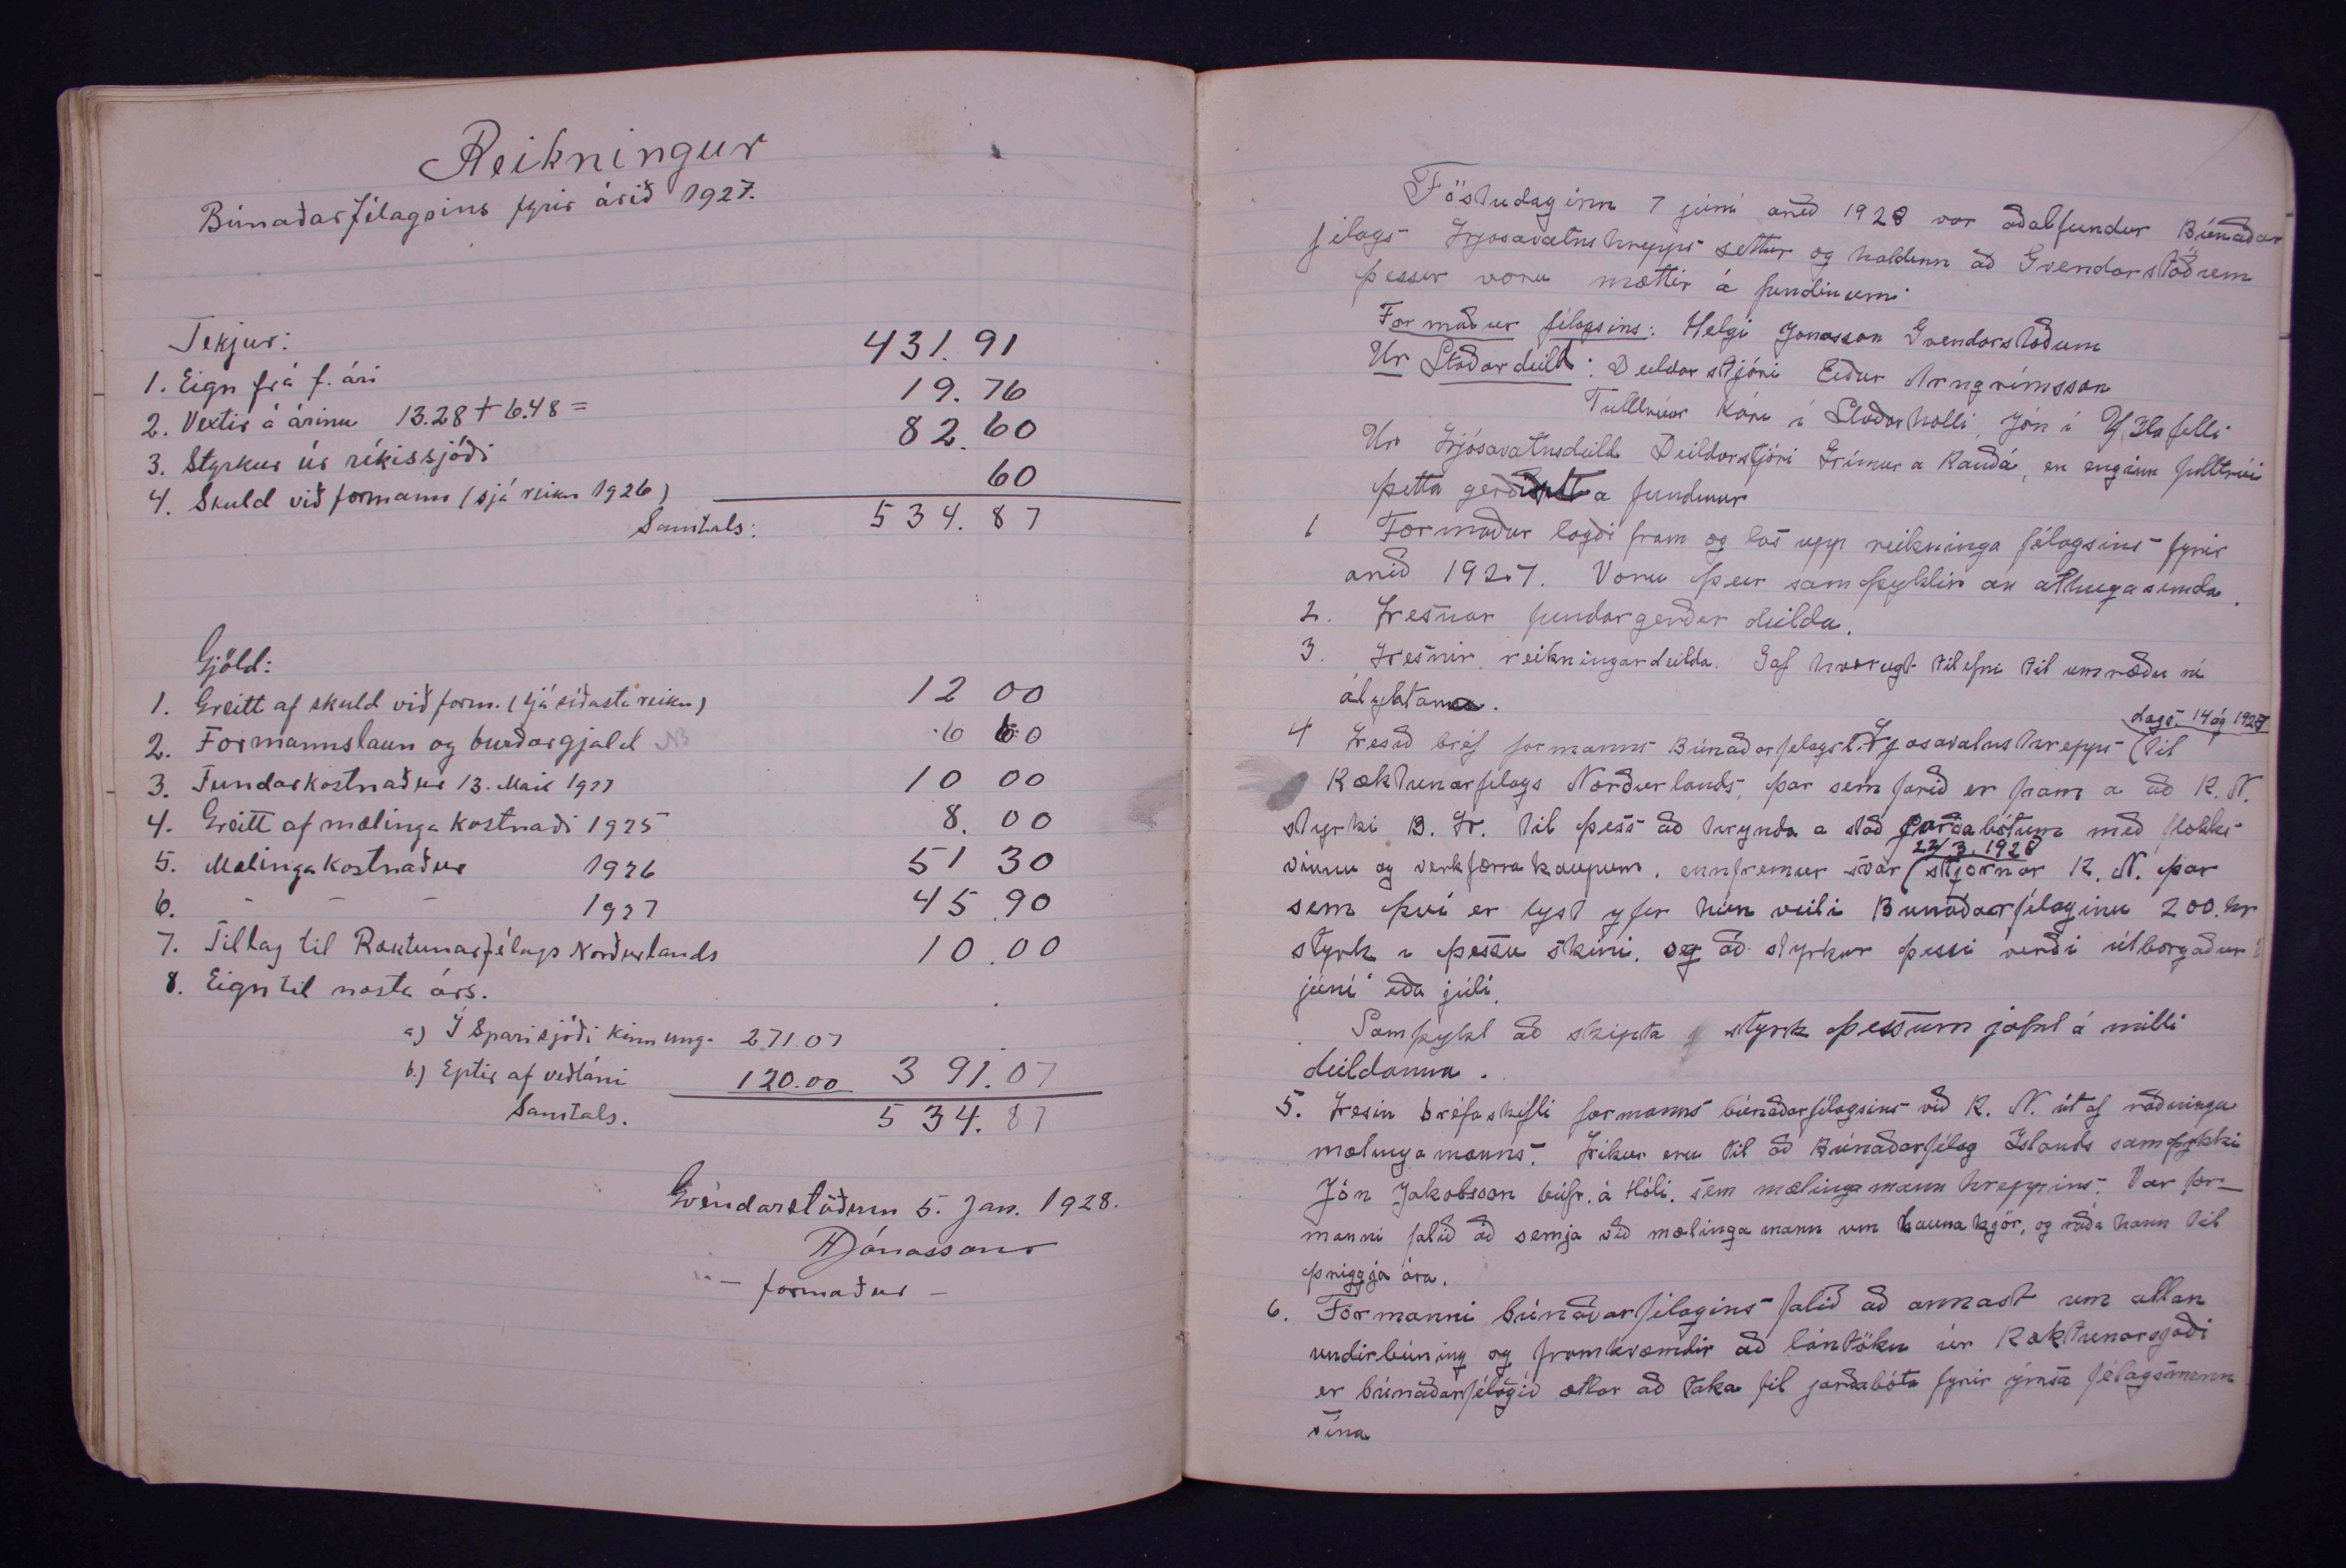 Reikningur
Búnaðarfélagsins fyrir árið 1927.
Tekjur:
1. Eign frá f. ári 431.91
2. Vextir á árinu 13.28 + 6.48 = 19.76
3. Styrkur úr ríkissjóði 82.60
4. Skuld við formann (sjá reikn 1926) 60
Samtals: 534.87
Gjöld:
1. Greitt af skuld við form. (sjá síðasta reikn) 12 00
2. Formannslaun og burðargjald NB 6 60
3. Fundarkostnaður 13. Mai 1927 10 00
4. Greitt af mælinga kostnaði 1925 8.00
5. Mælingakostnaður 1926 51 30
6. - - - 1927 45.90
7. Tillag til Ræktunarfélags Norðurlands 10.00
8. Eign til næsta árs.
a) Í Sparisjóði Kinnung. 271.07
b.) Eptir af veðláni 120.00 391.07
Samtals. 534.87
Gvendarstöðum 5. Jan. 1928.
HJónasson
- formaður -
Föstudaginn 7 júni árið 1928 var aðalfundur Búnaðar
félags Ljósavatnshrepps settur og haldinn að Gvendarstöðum
þessir voru mættir á fundinum:
Formaður félagsins: Helgi Jónasson Gvendarstöðum
Ur Staðardeild: Deildarstjóri Eiður Arngrímsson
Fulltrúar Kári í Staðarholli, Jón í Y. Fellli
Ur Ljósavatnsdeild Deildarstjóri Grímur a Rauðá, en enginn fulltrúi
þetta gerðist a fundinum
1 Formaður lagði fram og las upp reikninga félagsins fyrir
arið 1927. Voru þeir samþyktir án athugasemda.
2. Lesnar fundargerðir deilda.
3. Lesnir reikningar deilda. Gaf hvorugt tilefni til umræðu né
ályktana.
dags. 14 ág 1927
4 Lesið bréf formanns Búnaðarfelags Ljosavatnshrepps (til
Ræktunarfélags Norðurlands, þar sem farið er fram a að R. N.
styrki B. L. til þess að hrynda a stað jarðabótum með flokks-
22/3. 1928
vinnu og verkfærakaupum, ennfremur svar (stjórnar R. N. þar
sem því er lyst yfir hún veiti Bunaðarfélaginu 200. kr
styrk i þessu skini. og að styrkur þessi verði útborgaður í
júní eða júlí.
Samþykt að skipta styrk þessum jafnt á milli
deildanna.
5. Lesin bréfaskifti formanns búnaðarfélagsins við R. N. út af ráðningu
mælingamanns. Líkur eru til að Búnaðarfélag Islands samþykki
Jón Jakobsson búfr. á Hóli. sem mælingamann hreppins. Var for-
manni falið að semja við mælingamann um launakjör, og ráða hann til
þriggja ára.
6. Formanni búnaðarfélagins falið að annast um allan
undirbúning og framkvæmdir að lántöku úr Ræktunarsjóði
er búnaðarfélagið ætlar að taka til jarðabóta fyrir ýmsa félagsmenn
sína